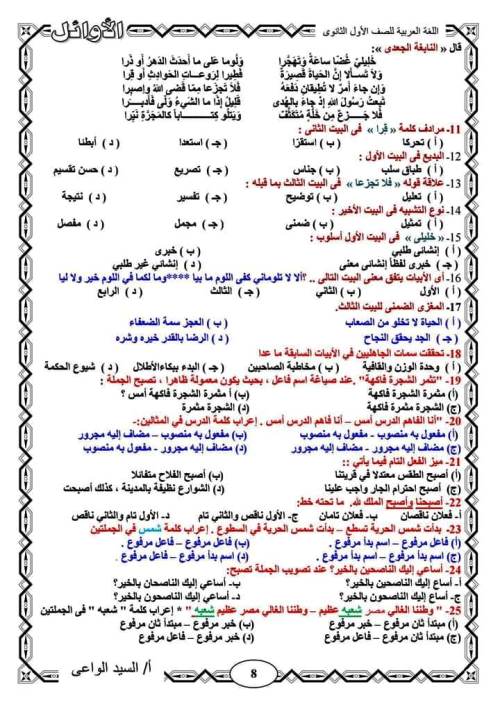 اللغة العربية للصف الأول الثانوى
الأوائل
قال « النابغة الجعدى »:
خليلي غضا ساعة وتهجرا ولوما على ما أحدث الدهر أو ذرا
ولا تسألا إن الحياة قصيرة فطيرا لروعات الحوادث أو قرا
وإن جاء أمر لا تطيقان دفعه فلا تجزعا مما قضى الله واصبرا
تبعث رسول الله إذ جاء بالهدى ويتلو كتابا كالمجرة نيرا
11- مرادف كلمة « قرا » فى البيت الثانى :
( أ ) تحركا ( ب ) استقرا ( جـ ) استعدا ( د ) أبطئا
12- البديع فى البيت الأول :
( أ ) طباق سلب ( ب ) جناس ( جـ ) تصريع ( د ) حسن تقسيم
13- علاقة قوله « فلا تجزعا » فى البيت الثالث بما قبله :
( أ ) تعليل ( ب ) توضيح ( جـ ) تفسير ( د ) نتيجة
14- نوع التشبيه فى البيت الأخير :
( أ ) تمثيل ( ب ) ضمنى ( جـ ) مجمل ( د ) مفصل
15- « خليلى » فى البيت الأول أسلوب :
( أ ) إنشائى طلبي ( ب ) خبرى
( جـ ) خبرى لفظاً إنشائى معنى ( د ) إنشائي غير طلبي
16- أى الأبيات يتفق معنى البيت التالى .. ؟ ألا لا تلوماني كفى اللوم ما بيا ****وما لكما في اللوم خير ولا ليا
( أ ) الأول ( ب ) الثاني ( جـ ) الثالث ( د ) الرابع
17- المغزى الضمنى للبيت الثالث.
( أ ) الحياة لا تخلو من الصعاب ( ب ) العجز سمة الضعفاء
( جـ ) الجد يحقق النجاح ( د ) الرضا بالقدر خيره وشره
18- تحققت سمات الجاهليين في الأبيات السابقة ما عدا
( أ ) وحدة الوزن والقافية ( ب ) مخاطبة الصاحبين ( جـ ) البدء ببكاء الأطلال ( د ) شيوع الحكمة
19- "تثمر الشجرة فاكهة" .عند صياغة اسم فاعل ، بحيث يكون معمولة ظاهرا ، تصبح الجملة :
(أ) مثمرة الشجرة فاكهة (ب) أ مثمرة الشجرة فاكهة أمس ؟
(ج) الشجرة مثمرة فاكهة (د) الشجرة مثمرة
20- "أنا الفاهم الدرس أمس – أنا فاهم الدرس أمس . إعراب كلمة الدرس في المثالين:-
(أ) مفعول به منصوب - مفعول به منصوب (ب) مفعول به منصوب – مضاف إليه مجرور
(ج) مضاف إليه مجرور - مضاف إليه مجرور (د) مضاف إليه مجرور - مفعول به منصوب
21- ميز الفعل التام فيما يأتي ::
(أ) أصبح الطقس معتدلا في قريتنا (ب) أصبح الفلاح متفائلا
(ج) أصبح احترام الجار واجب علينا (د) الشوارع نظيفة بالمدينة ، كذلك أصبحت
22- أصبحنا وأصبح الملك لله. ما تحته خط:
أ- فعلان ناقصان ب- فعلان تامان ج- الأول ناقص والثاني تام د- الأول تام والثاني ناقص
23- بدأت شمس الحرية تسطع – بدأت شمس الحرية في السطوع . إعراب كلمة شمس في الجملتين
(أ) فاعل مرفوع – اسم بدأ مرفوع . (ب) فاعل مرفوع – فاعل مرفوع .
(ج) اسم بدأ مرفوع – اسم بدأ مرفوع . (د) اسم بدأ مرفوع – فاعل مرفوع .
24- أساعي إليك الناصحين بالخير؟ عند تصويب الجملة تصبح:
أ- أساع إليك الناصحين بالخير؟ ب- أساعي إليك الناصحان بالخير؟
ج- أساع إليك الناصحون بالخير؟ د- أساعي إليك الناصحون بالخير؟
25- " وطننا الغالي مصر شعبه عظيم – وطننا الغالي مصر عظيم شعبه " * إعراب كلمة " شعبه " فى الجملتين
(أ) مبتدأ ثان مرفوع – خبر مرفوع (ب) خبر مرفوع – مبتدأ ثان مرفوع
(ج) مبتدأ ثان مرفوع – فاعل مرفوع (د) خبر مرفوع – فاعل مرفوع
أ/ السيد الواعى
8